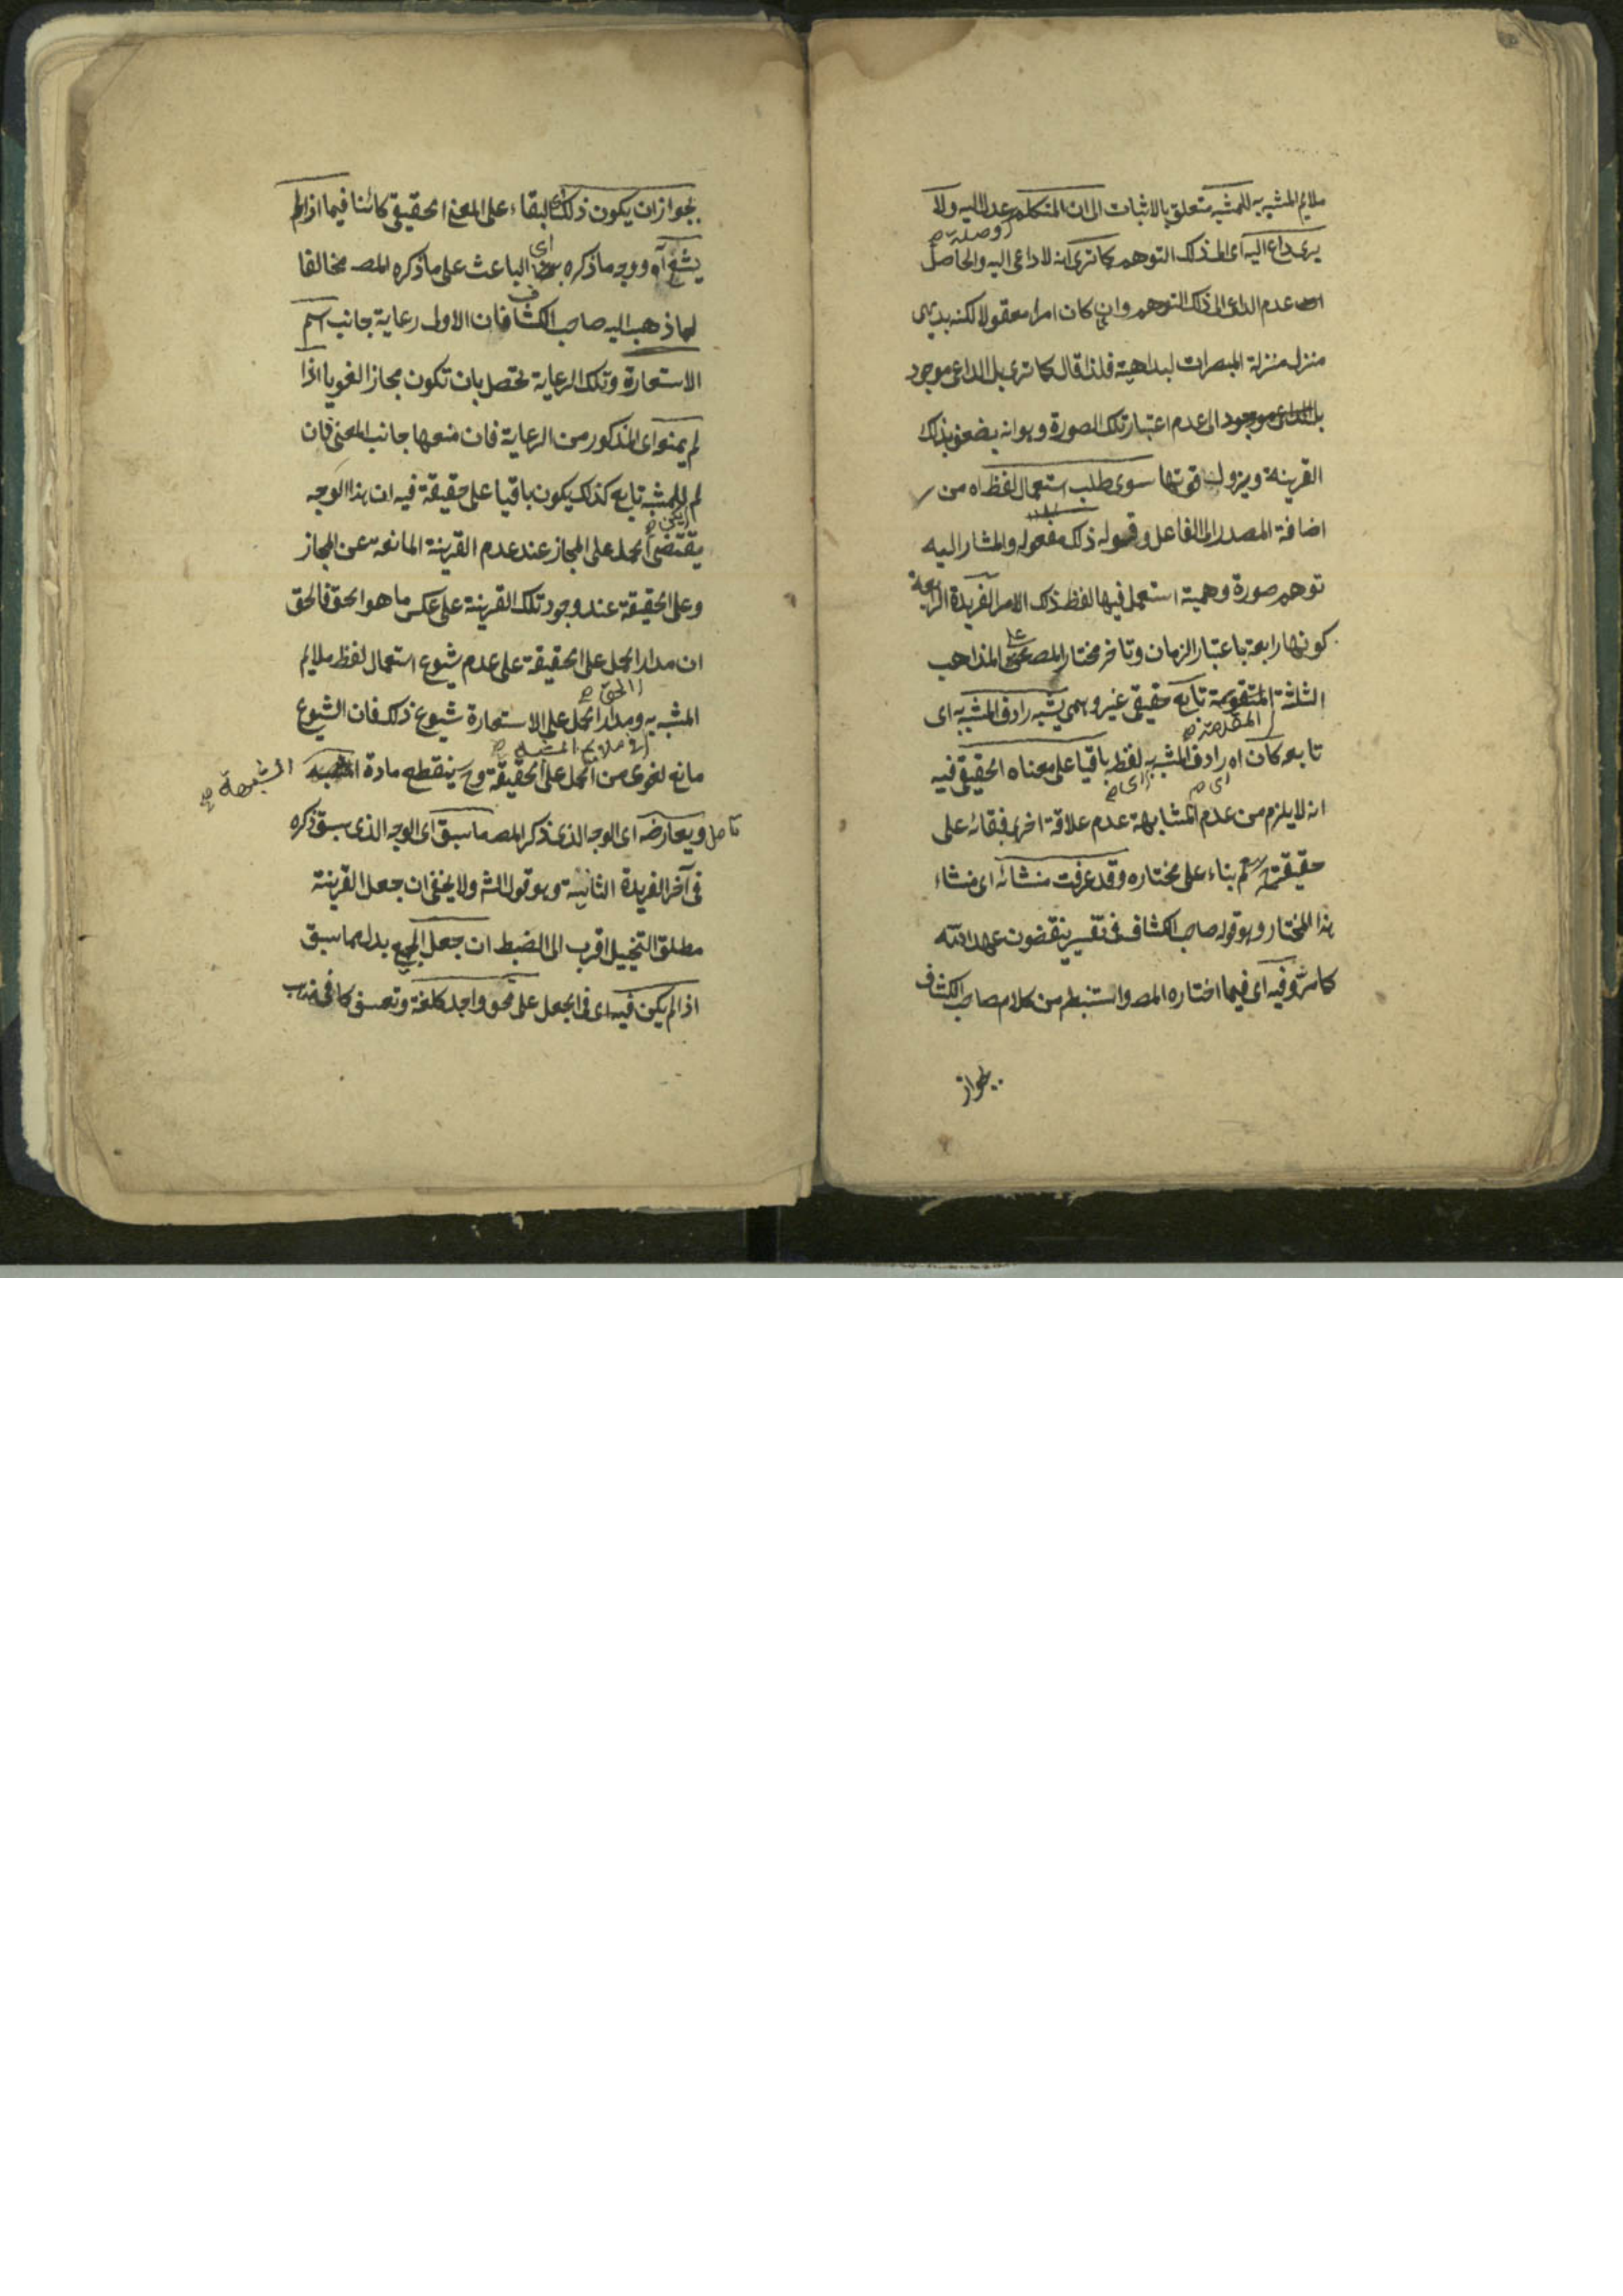 ملايم المشبه به للمشبه متعلق بالاثبات الى ان المتكلم عدل اليه ولا
او صلة صح
يرى داع اليه اى الى ذلك التوهم كما ترى انه لا داعى اليه والحاصل
ان عدم الداعى الى ذلك التوهم وان كان امرا معقولا لكنه بديهى
منزل منزلة المبصرات لبداهته فلذا قال كما ترى بل الداعى موجود
بل الداعى موجود الى عدم اعتبار تلك الصورة وهو انه يضعف بذلك
القرينة ويزول قوتها سوى طلب استعمال لفظ اه من
اضافة المصدر الى الفاعل وقوله ذلك مفعوله والمشار اليه
توهم صورة وهمية استعمل فيها لفظ ذلك الامر الفريدة الرابعة
كونها رابعة باعتبار الزمان وتأخر مختار المصـ على المذاهب
الثلثة المتقومة تابع حقيقى غير وهمى يشبه رادف المشبه به اى
المتقدمة صح
تابعه كان اه رادف المشبه به لفظه باقيا على معناه الحقيقى فيه
اى صح
انه لا يلزم من عدم المشابهة عدم علاقة اخرى فبقائه على
حقيقته بناء على مختاره وقد عرفت منشائه اى منشاء
هذا المختار وهو قول صاحب الكشاف فى تفسير ينقضون عهد الله
كما مر وفيه اى فيما اختاره المصـ واستنبطه من كلام صاحب الكشاف
بجواز
بجواز ان يكون ذلك اى البقاء على المعنى الحقيقى كائنا فيما اذا لم
يشع آه ووجه ما ذكره اى الباعث على ما ذكره المصـ مخالفا
لما ذهب اليه صاحب الكشاف فان الاولى رعاية جانب اسم
الاستعارة وتلك الرعاية تحصل بان تكون مجازا لغويا اذا
لم يمنع اى المذكور من الرعاية فان منعها جانب المعنى فان
لم للمشبه تابع كذلك يكون باقيا على حقيقة فيه ان هذا الوجه
يكن صح
يقتضى الحمل على المجاز عند عدم القرينة المانعة عن المجاز
وعلى الحقيقة عند وجود تلك القرينة على عكس ما هو الحق فالحق
ان مدار الحمل على الحقيقة على عدم شيوع استعمال لفظ ملايم
الحق صح
المشبه به ومدار الحمل على الاستعارة شيوع ذلك فان الشيوع
فى ملايم المشبه صح
مانع لغوى من الحمل على الحقيقة وح ينقطع مادة الشبهة صح
تأمل ويعارضه اى الوجه الذى ذكر المصـ ما سبق اى الوجه الذى سبق ذكره
فى آخر الفريدة الثانية وهو قول الشـ ولا يخفى ان جعل القرينة
مطلق التخييل اقرب الى الضبط ان جعل الجميع بدل مما سبق
اذا لم يكن فيه اى فى الجعل على نحو واحد كلفة وتعسف كما فى مذهب